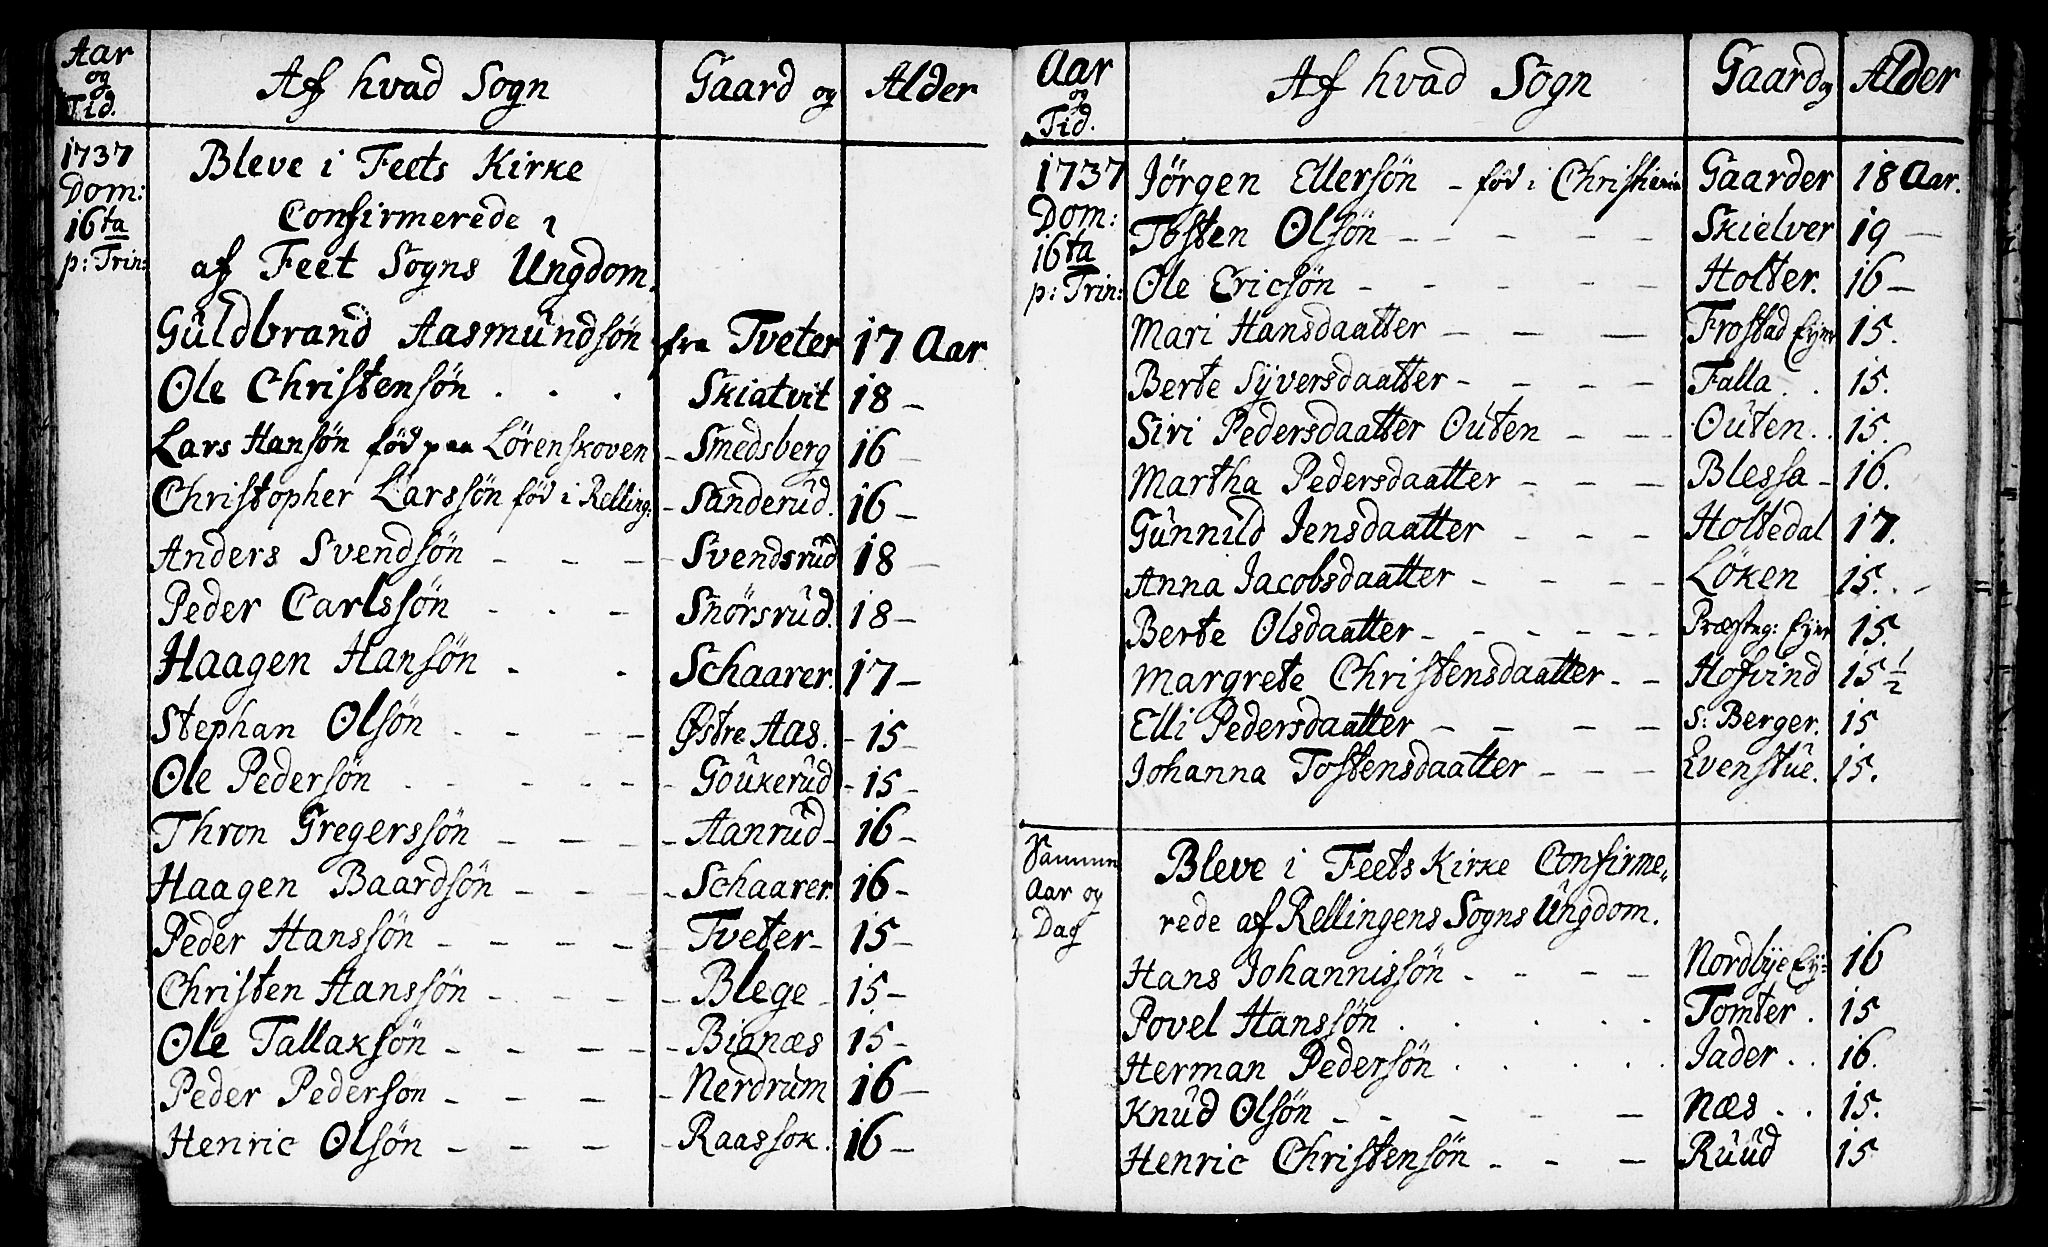 Aar og Tid. Af hvad Sogn Gaard og Alder
1737 Bleve i Feets Kirke
Dom: Confirmerede
16ta af Feet Sogns Ungdom.
p: Trin:
Guldbrand Aasmundsøn fra Tveter 17 Aar
Ole Christensøn . . . Skiatvit 18 –
Lars Hansøn fød paa Lörenskoven – Smedsberg 16 –
Christopher Larssøn fød i Relling: – Sanderud. 16 –
Anders Svendsøn – – – – Svendsrud 18 –
Peder Carlssøn – – – Snörsrud. 18 –
Haagen Hansøn . . Schaarer. 17 –
Stephan Olsøn – – – – Østre Aas. – 15 –
Ole Pedersøn – – – – – Goukerud – 15 –
Thron Gregerssøn – – – – Aanrud – 16 –
Haagen Baardsøn – – – – Schaarer. 16 –
Peder Hanssøn – – – – Tveter – 15 –
Christen Hanssøn – – – – Blege – 15 –
Ole Tallaksøn – – – – – Bianæs 15 –
Peder Pedersøn – – – – Nerdrum 16 –
Henric Olsøn – – – – Raassok. 16 –
Aar og Tid. Af hvad Sogn Gaard og Alder
1737 Jørgen Ellersøn – fød i Christiania Gaarder 18 Aar.
Dom: Tosten Olsøn – – – – – Skielver 19 –
16ta
p: Trin: Ole Ericsøn – – – – – Holter. 16 –
Mari Hansdaatter – – – Frostad Eyer 15.
Berte Syversdaatter – – – – Falla . . 15.
Siri Pedersdaatter Outen – – – Outen . . 15.
Martha Pedersdaatter – – – Blessa – 16.
Gunnild Jensdaatter – – – Holtedal 17.
Anna Jacobsdaatter – – – – Löken 15. . –
Berte Olsdaatter – – – – – – Præsteg: Eyer 15.
Margrete Christensdaatter – – Hofvind 15 1/2
Elli Pedersdaatter – – – – S: Berger. 15
Johanna Tostensdaatter – – – Evenstue. 15.
Samme Aar og Dag
Bleve i Feets Kirke Confirme„
rede af Rellingens Sogns Ungdom.
Hans Johannissøn . – – – Nordbye Ey: 16
Povel Hanssøn . . . . . Tomter . 15
Herman Pedersøn . . . . . Jader . . 16.
Knud Olsøn – – – – – Næs . . 15.
Henric Christensøn – – – Ruud 15